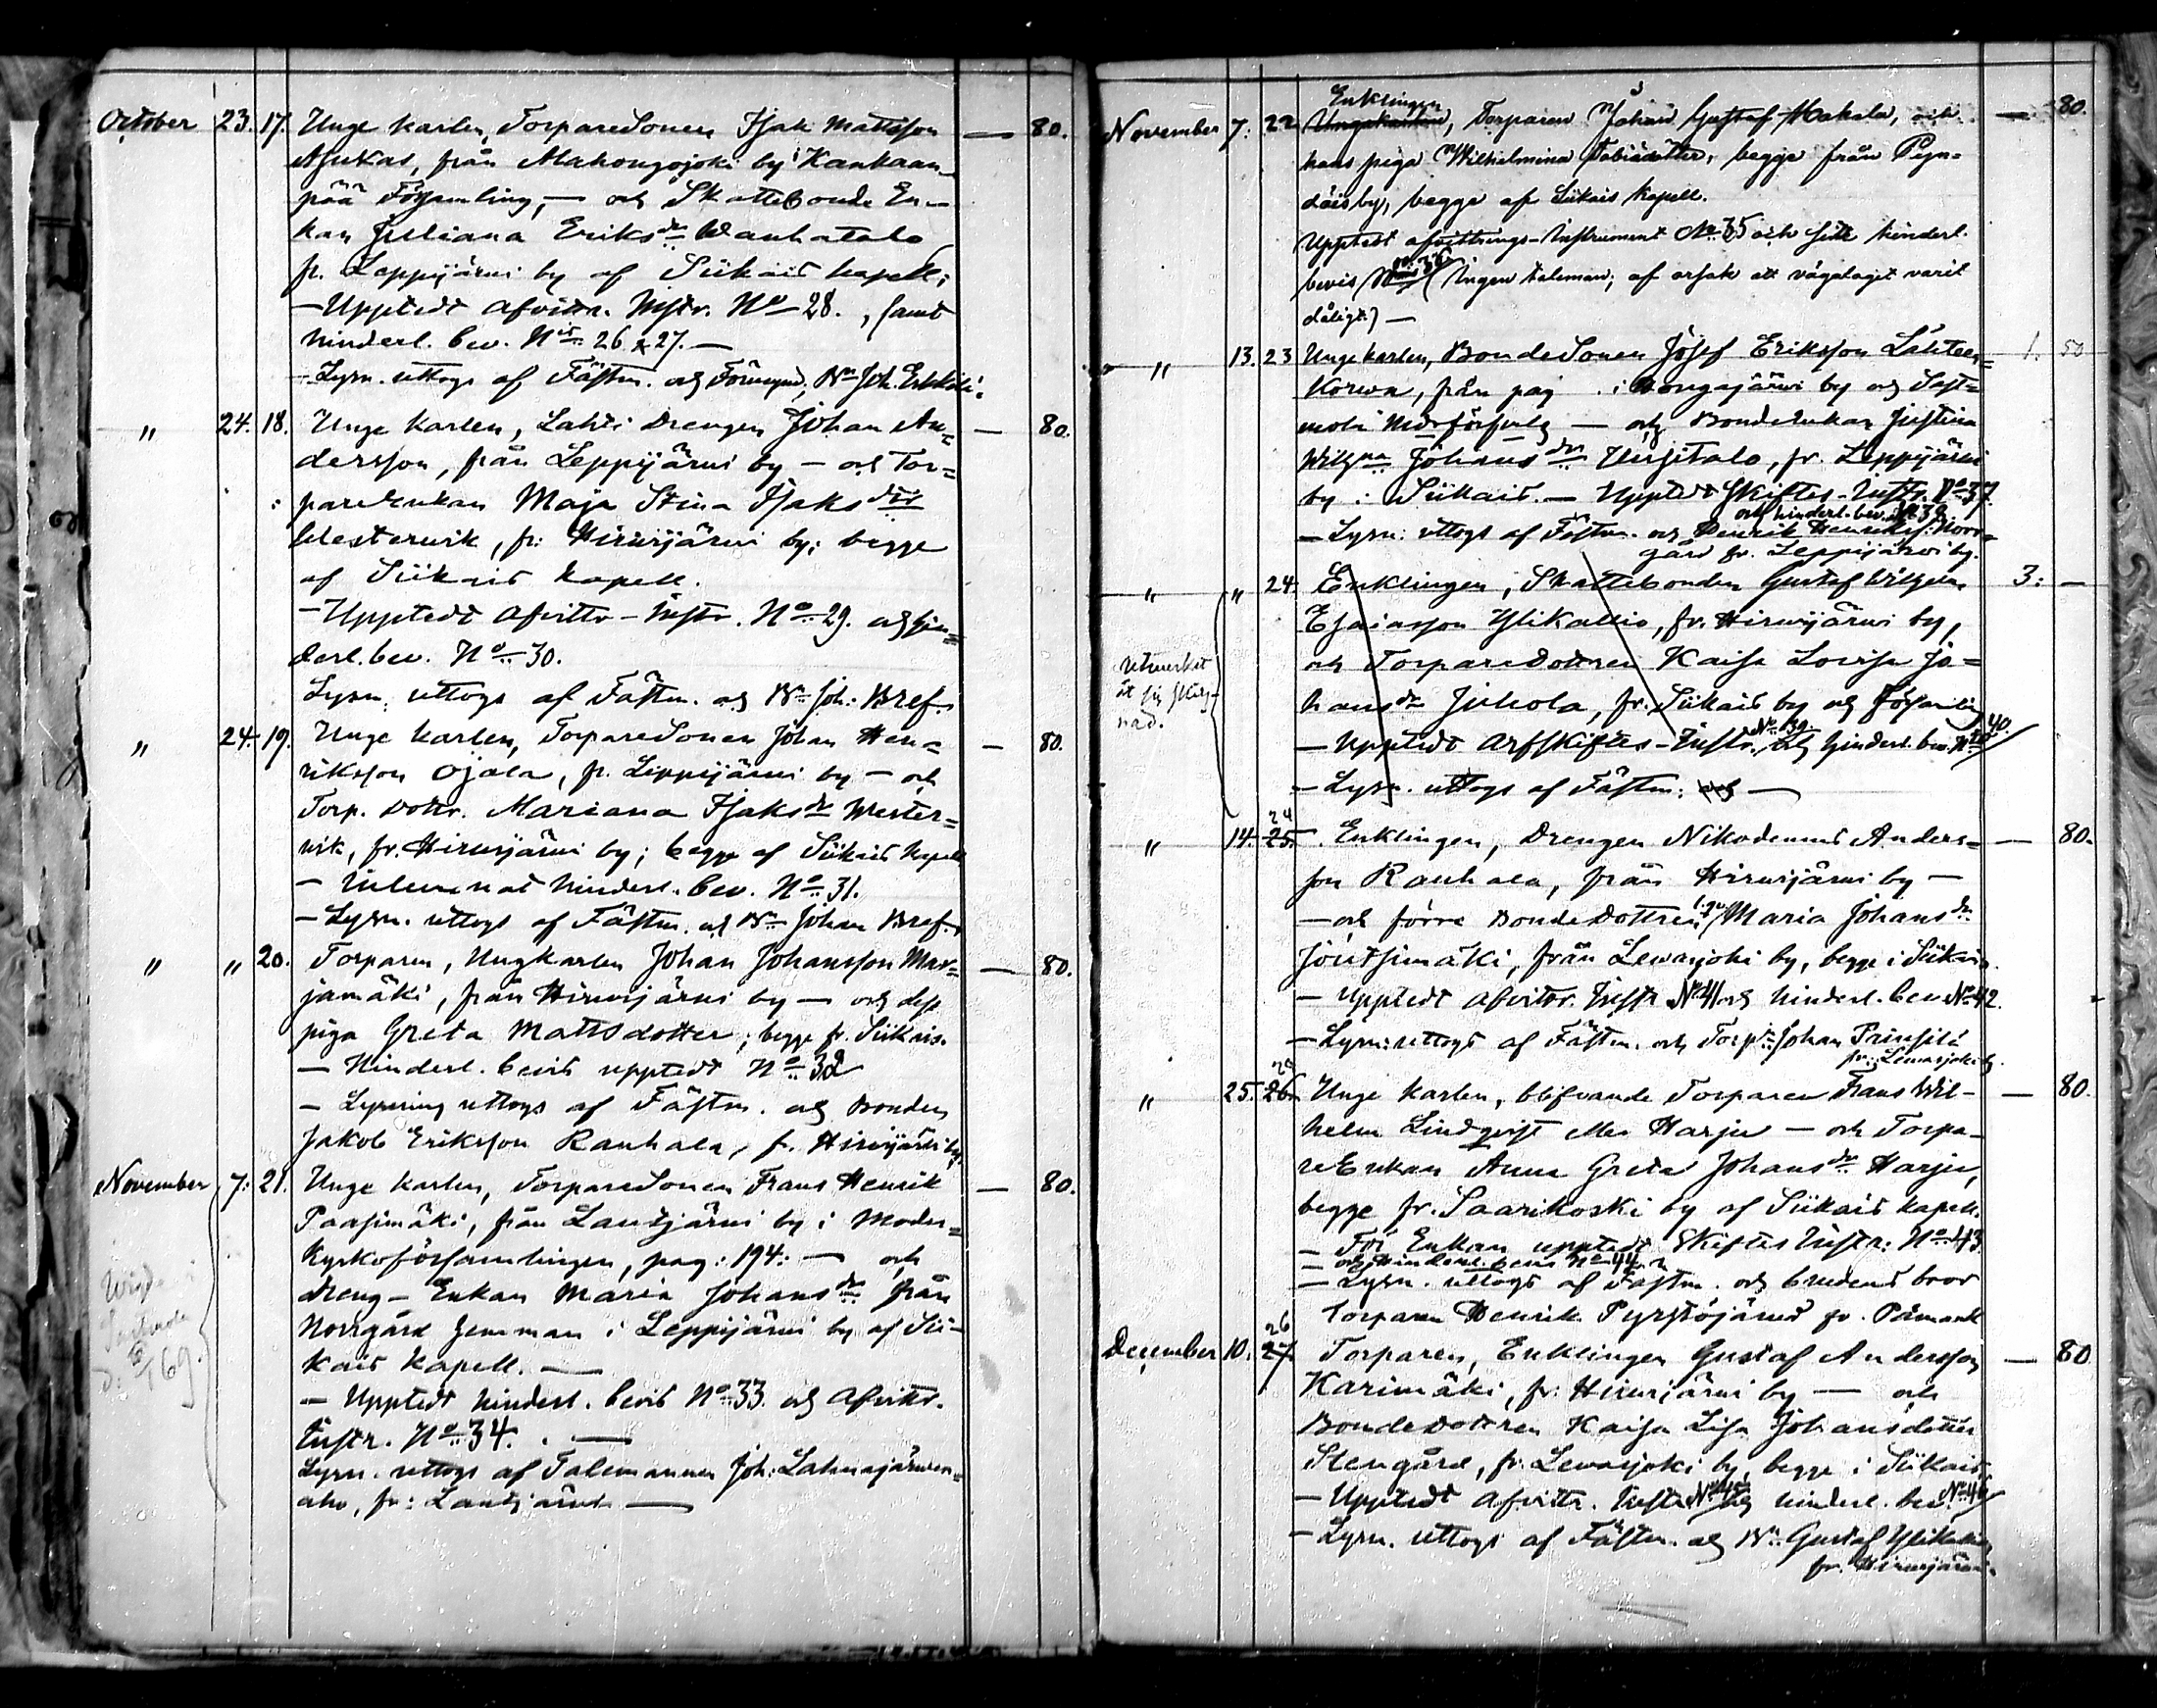 October 23. 17. Unge karlen, Torparesonen Isak Mattsson — 80.
Asukas, från Alahongojoki by i Kankaan-
pää Församling, — och Skattebonde En-
kan Juliana Eriksdr Wanhatalo
fr. Leppijärvi by af Siikais kapell;
— Upptedt afvittr. Instr. No 28., samt
hinderl. bev. No 26 & 27. —
— Lysn. uttogs af Fästm. och Förmynd, Bn Joh. Erkkilä.
" 24. 18. Unge karlen, Lahti Drengen Johan An= — 80.
dersson, från Leppijärvi by — och Tor=
pareenkan Maja Stina Isaksdr
Westervik, fr: Hirvijärvi by; begge
af Siikais kapell.
— Upptedt afvittr-Instr. No 29. och hin=
derl. bev. No 30.
Lysn. uttogs af Fästm. och Bn Joh: Bref.
" 24. 19. Unge karlen, Torparesonen Johan Hen= — 80.
riksson Ojala, fr. Leppijärvi by — och
Torp. dottr. Mariana Isaksdr Wester=
vik, fr. Hirvijärvi by; begge af Siikais kapell
— Inlemnat hinderl. bev. No 31.
— Lysn. uttogs af Fästm. och Bn Johan Bref.
" " 20. Torparen, Ungkarlen Johan Johansson Mar= — 80.
jamäki, från Hirvijärvi by — och dess
piga Greta Mattsdotter; begge fr. Siikais.
— Hinderl. bevis upptedt No 32
— Lysning uttogs af Fästm. och Bonden
Jakob Eriksson Rauhala, fr. Hirvijärvi by.
November 7. 21. Unge karlen, Torparesonen Frans Henrik — 80.
Paasimäki, från Lautjärvi by i Moder=
kyrkoförsamlingen, pag: 194: — och
dreng-Enkan Maria Johansdr från
Norrgård hemman i Leppijärvi by af Sii-
kais kapell. —
— Upptedt hinderl. bevis No 33. och afvittr.
Instr. No 34. —
Lysn. uttogs af Talemannen Joh: Lahnajärven=
aho, fr: Lautjärvi —
November 7. 22 Enklingen
Ungekarlen, Torparen Johan Gustaf Makala, och — 80.
hans piga Wilhelmina Tobiadotter, begge från Pyn=
däis by, begge af Siikais kapell.
Upptedt afvittrings-Instrument No 35 och sitt hinderl.
bevis No 36 (Ingen taleman, af orsak att väglaget varit
dåligt) —
" 13. 23 Unge karlen, Bondesonen Josef Eriksson Lähteen= 1. 50
korva, från pag . i Hongajärvi by och Sast=
mola Moderförsamlg — och Bondeenkan Justina
Wilhna Johansdr Uusitalo, fr. Leppijärvi
by i Siikais. — Upptedt Skiftes-Instr. No 37.
och hinderl. bev. No 38
— Lysn: uttogs af Fästm. och Henrik Henrikss: Norr=
gård fr. Leppijärvi by.
" " 24. Enklingen, Skattebonden Gustaf Wilhelm 3: —
Esaiasson Ylikallio, fr. Hirvijärvi by,
och Torparedottren Kaisa Lovisa Jo=
hansdr Juhola, fr. Siikais by och Församling
— Upptedt Arfskiftes-Instr. No 39. och hinderl. bev. No 40.
— Lysn. uttogs af Fästm: och —
" 14. 25. 24 Enklingen, Drengen Nikodemus Anders= — 80.
son Rauhala, från Hirvijärvi by —
— och förre Bondedottren Maria Johansdr
Joutsimäki, från Lewasjoki by, begge i Siikais.
— Upptedt afvittr. Instr No 41 och hinderl. bev No 42.
— Lysn: uttogs af Fästm. och Torpn Johan Prinsilä
fr: Lewasjoki by.
" 25. 26. Unge karlen, blifvande Torparen Frans Wil- — 80.
helm Lindqvist eller Harju — och Torpa-
reEnkan Anna Greta Johansdr Harju,
begge fr. Saarikoski by af Siikais kapell.
— För Enkan upptedt Skiftes Instr: No 43.
— och hinderl. bevis No 44
— Lysn. uttogs af Fästm. och brudens bror
Torparen Henrik Pyrstöjärvi fr. Påmark
December 10. 27. 26 Torparen, Enklingen Gustaf Andersson — 80
Harimäki, fr: Hirvijärvi by — och
Bondedottren Kaisa Lisa Johansdotter
Stengård, fr. Lewasjoki by, begge i Siikais,
— Upptedt afvittr. Instr No 45 och hinderl. bev. No 46
— Lysn. uttogs af Fästm. och Bn Gustaf Ylikallio
fr. Hirvijärvi.